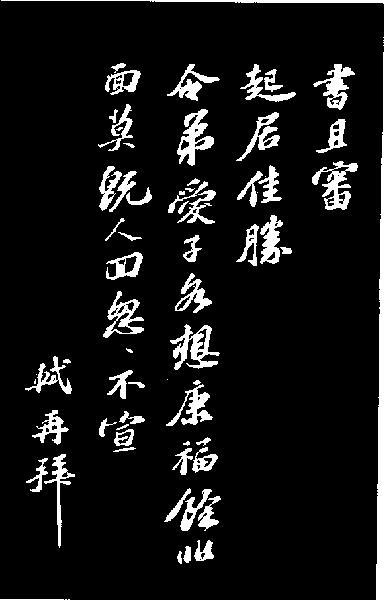 書且審
起居佳勝
令弟愛子各想康福餘非
面莫既人回怱〻不宣
軾再拜